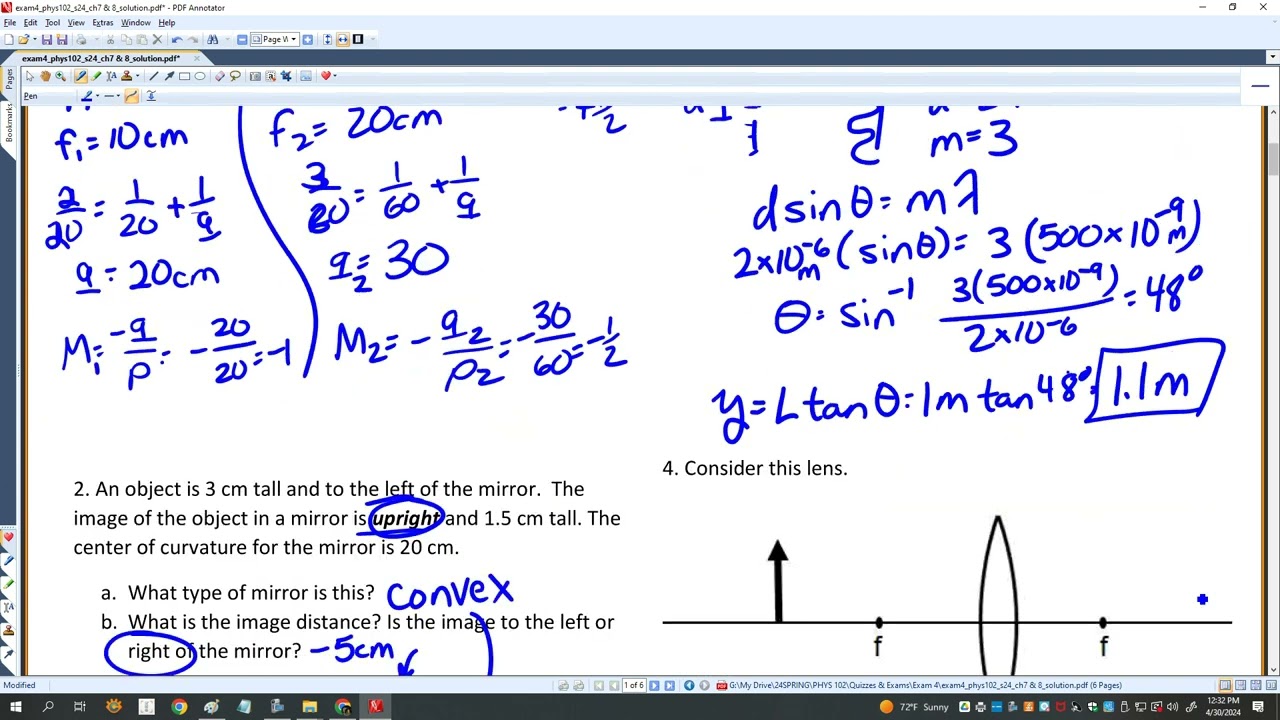 exam4_phys102_s24_ch7 & 8_solution.pdf* - PDF Annotator
File Edit Tool View Extras Window Help
Page W
exam4_phys102_s24_ch7 & 8_solution.pdf*
Pen
Pages
Bookmarks
f₁ = 10cm
2/20 = 1/20 + 1/q
q = 20cm
M₁ = -q/p = -20/20 = -1
f₂ = 20cm
3/60 = 1/60 + 1/q
q₂ = 30
M₂ = -q₂/p₂ = -30/60 = -1/2
m = 3
d sin θ = m λ
2x10⁻⁶m (sin θ) = 3 (500x10⁻⁹m)
θ = sin⁻¹ 3(500x10⁻⁹)/2x10⁻⁶ = 48°
y = L tan θ = 1m tan 48° = 1.1m
2. An object is 3 cm tall and to the left of the mirror. The
image of the object in a mirror is upright and 1.5 cm tall. The
center of curvature for the mirror is 20 cm.
a. What type of mirror is this? convex
b. What is the image distance? Is the image to the left or
right of the mirror? -5cm
4. Consider this lens.
f f
Modified
1 of 6
G:\My Drive\24SPRING\PHYS 102\Quizzes & Exams\Exam 4\exam4_phys102_s24_ch7 & 8_solution.pdf (6 Pages)
72°F Sunny
12:32 PM
4/30/2024